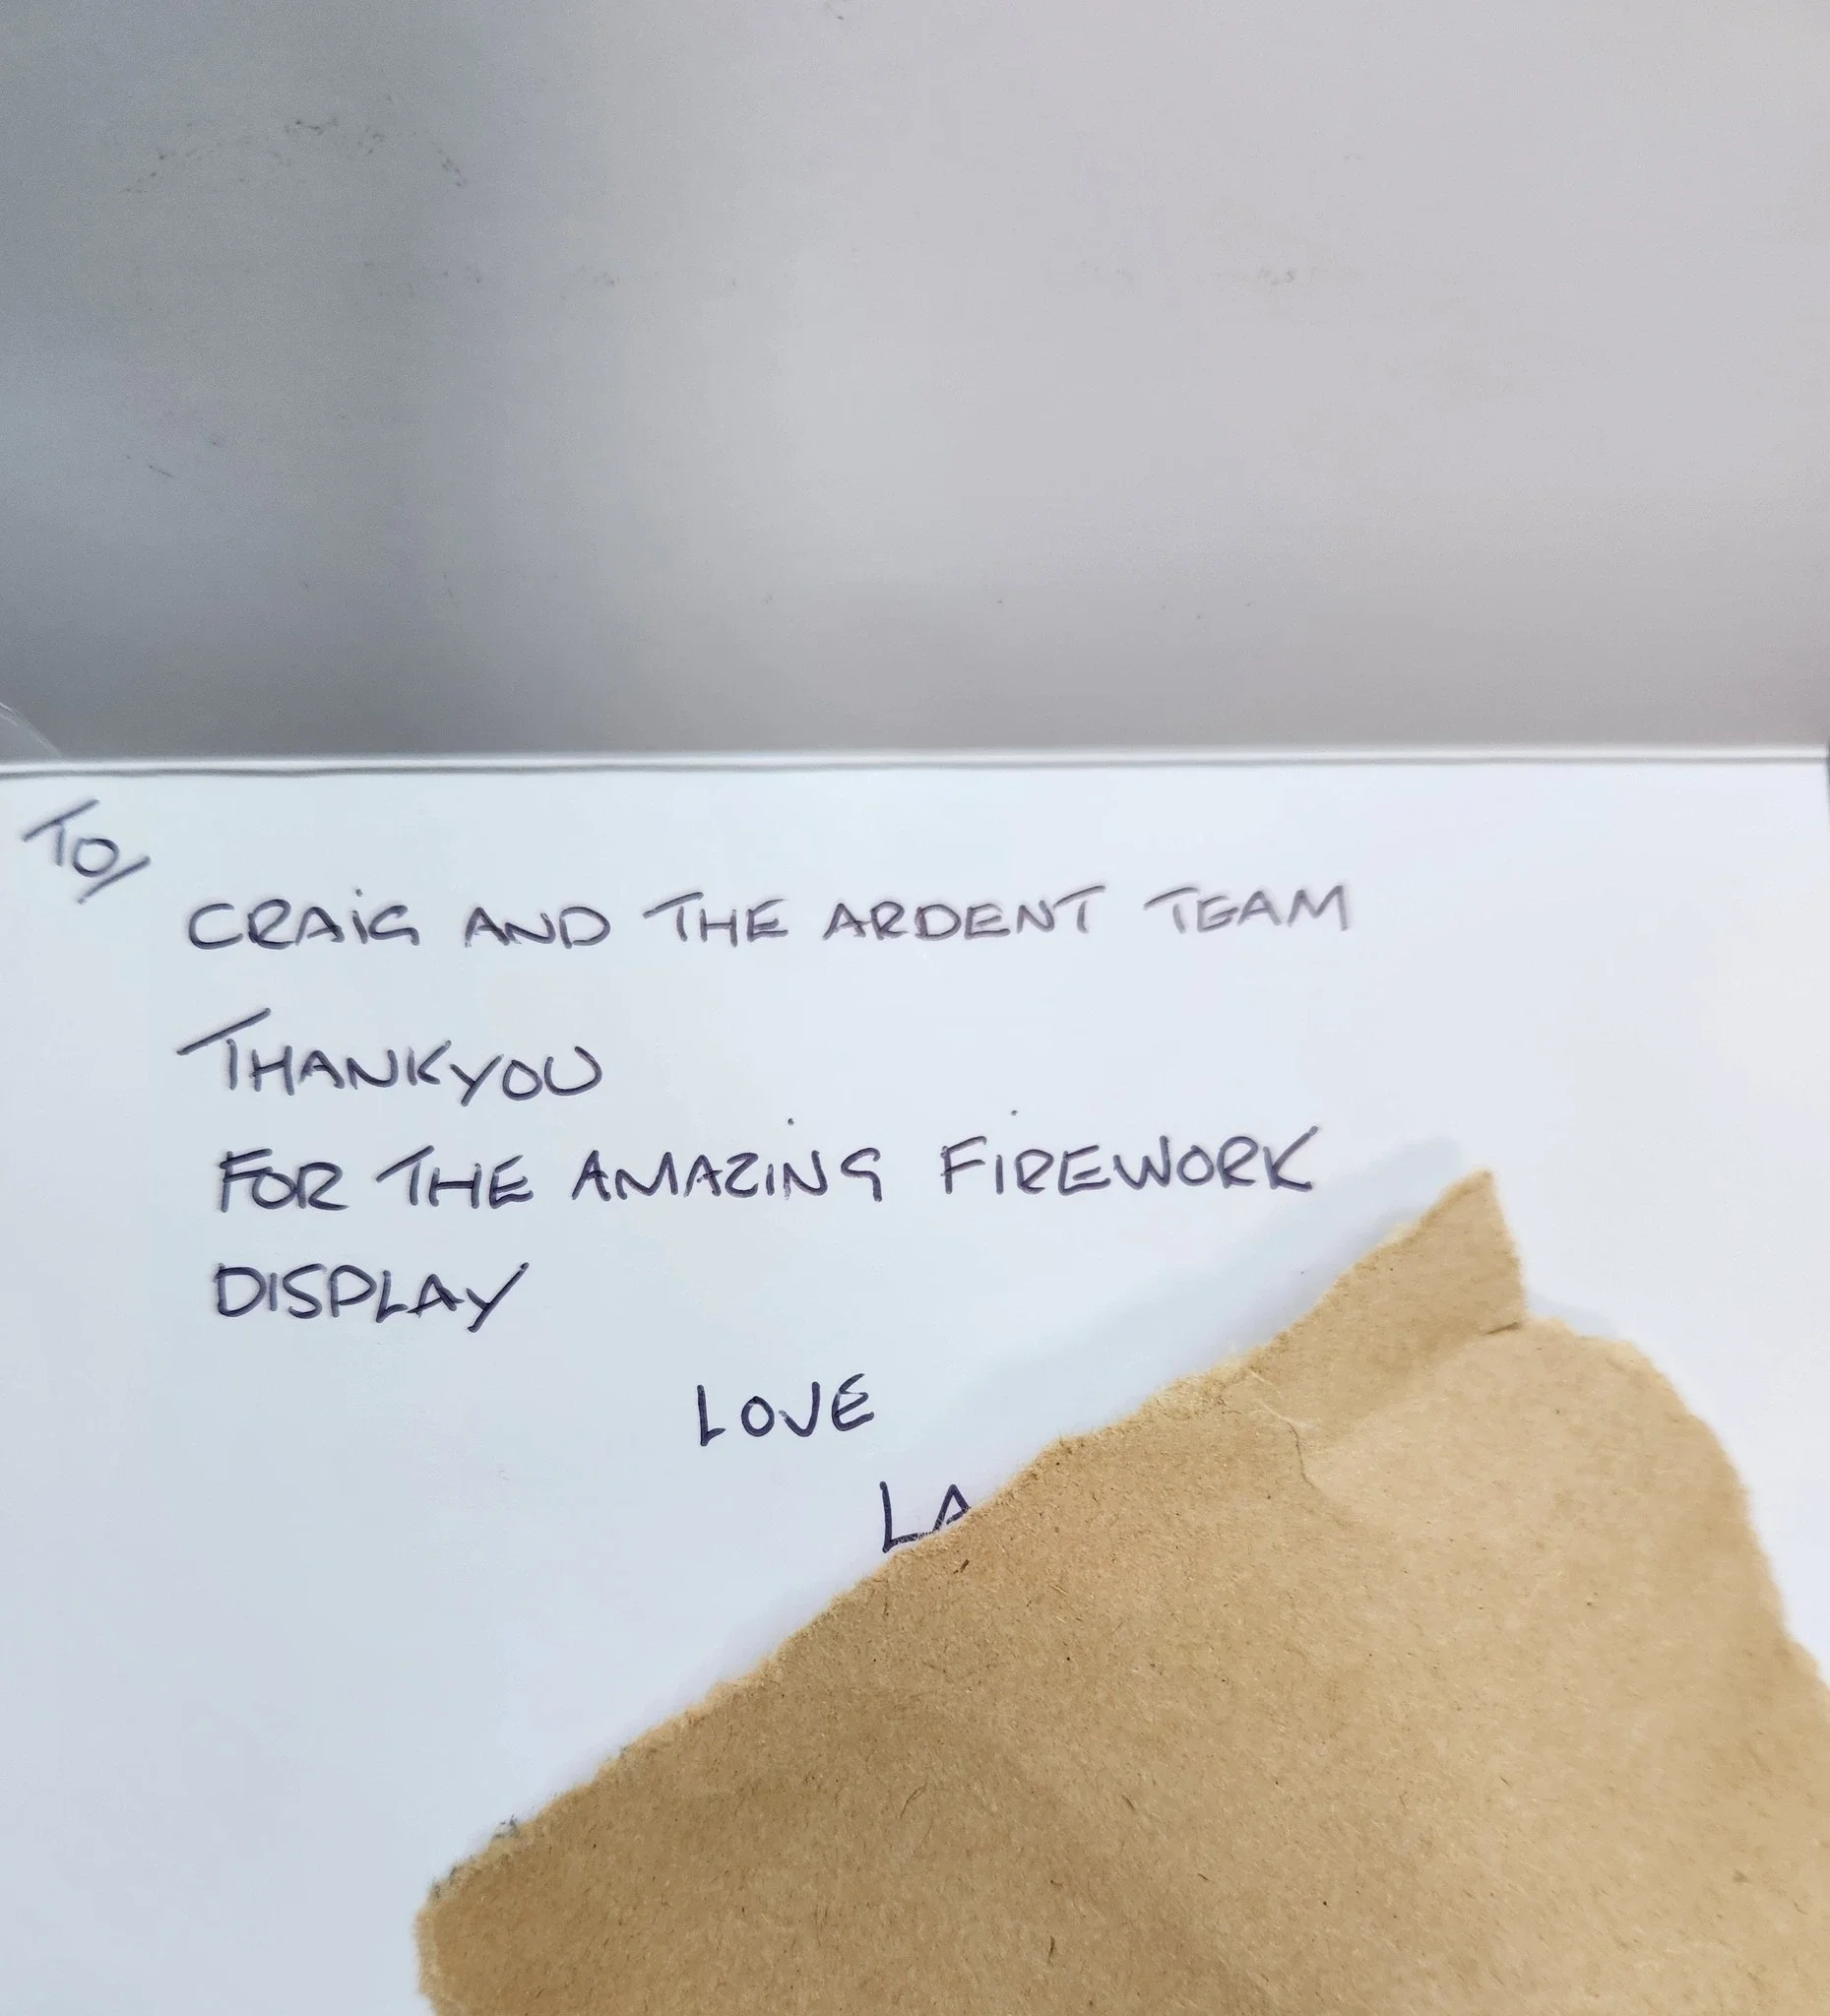 TO/
CRAIG AND THE ARDENT TEAM
THANKYOU
FOR THE AMAZING FIREWORK
DISPLAY
LOVE